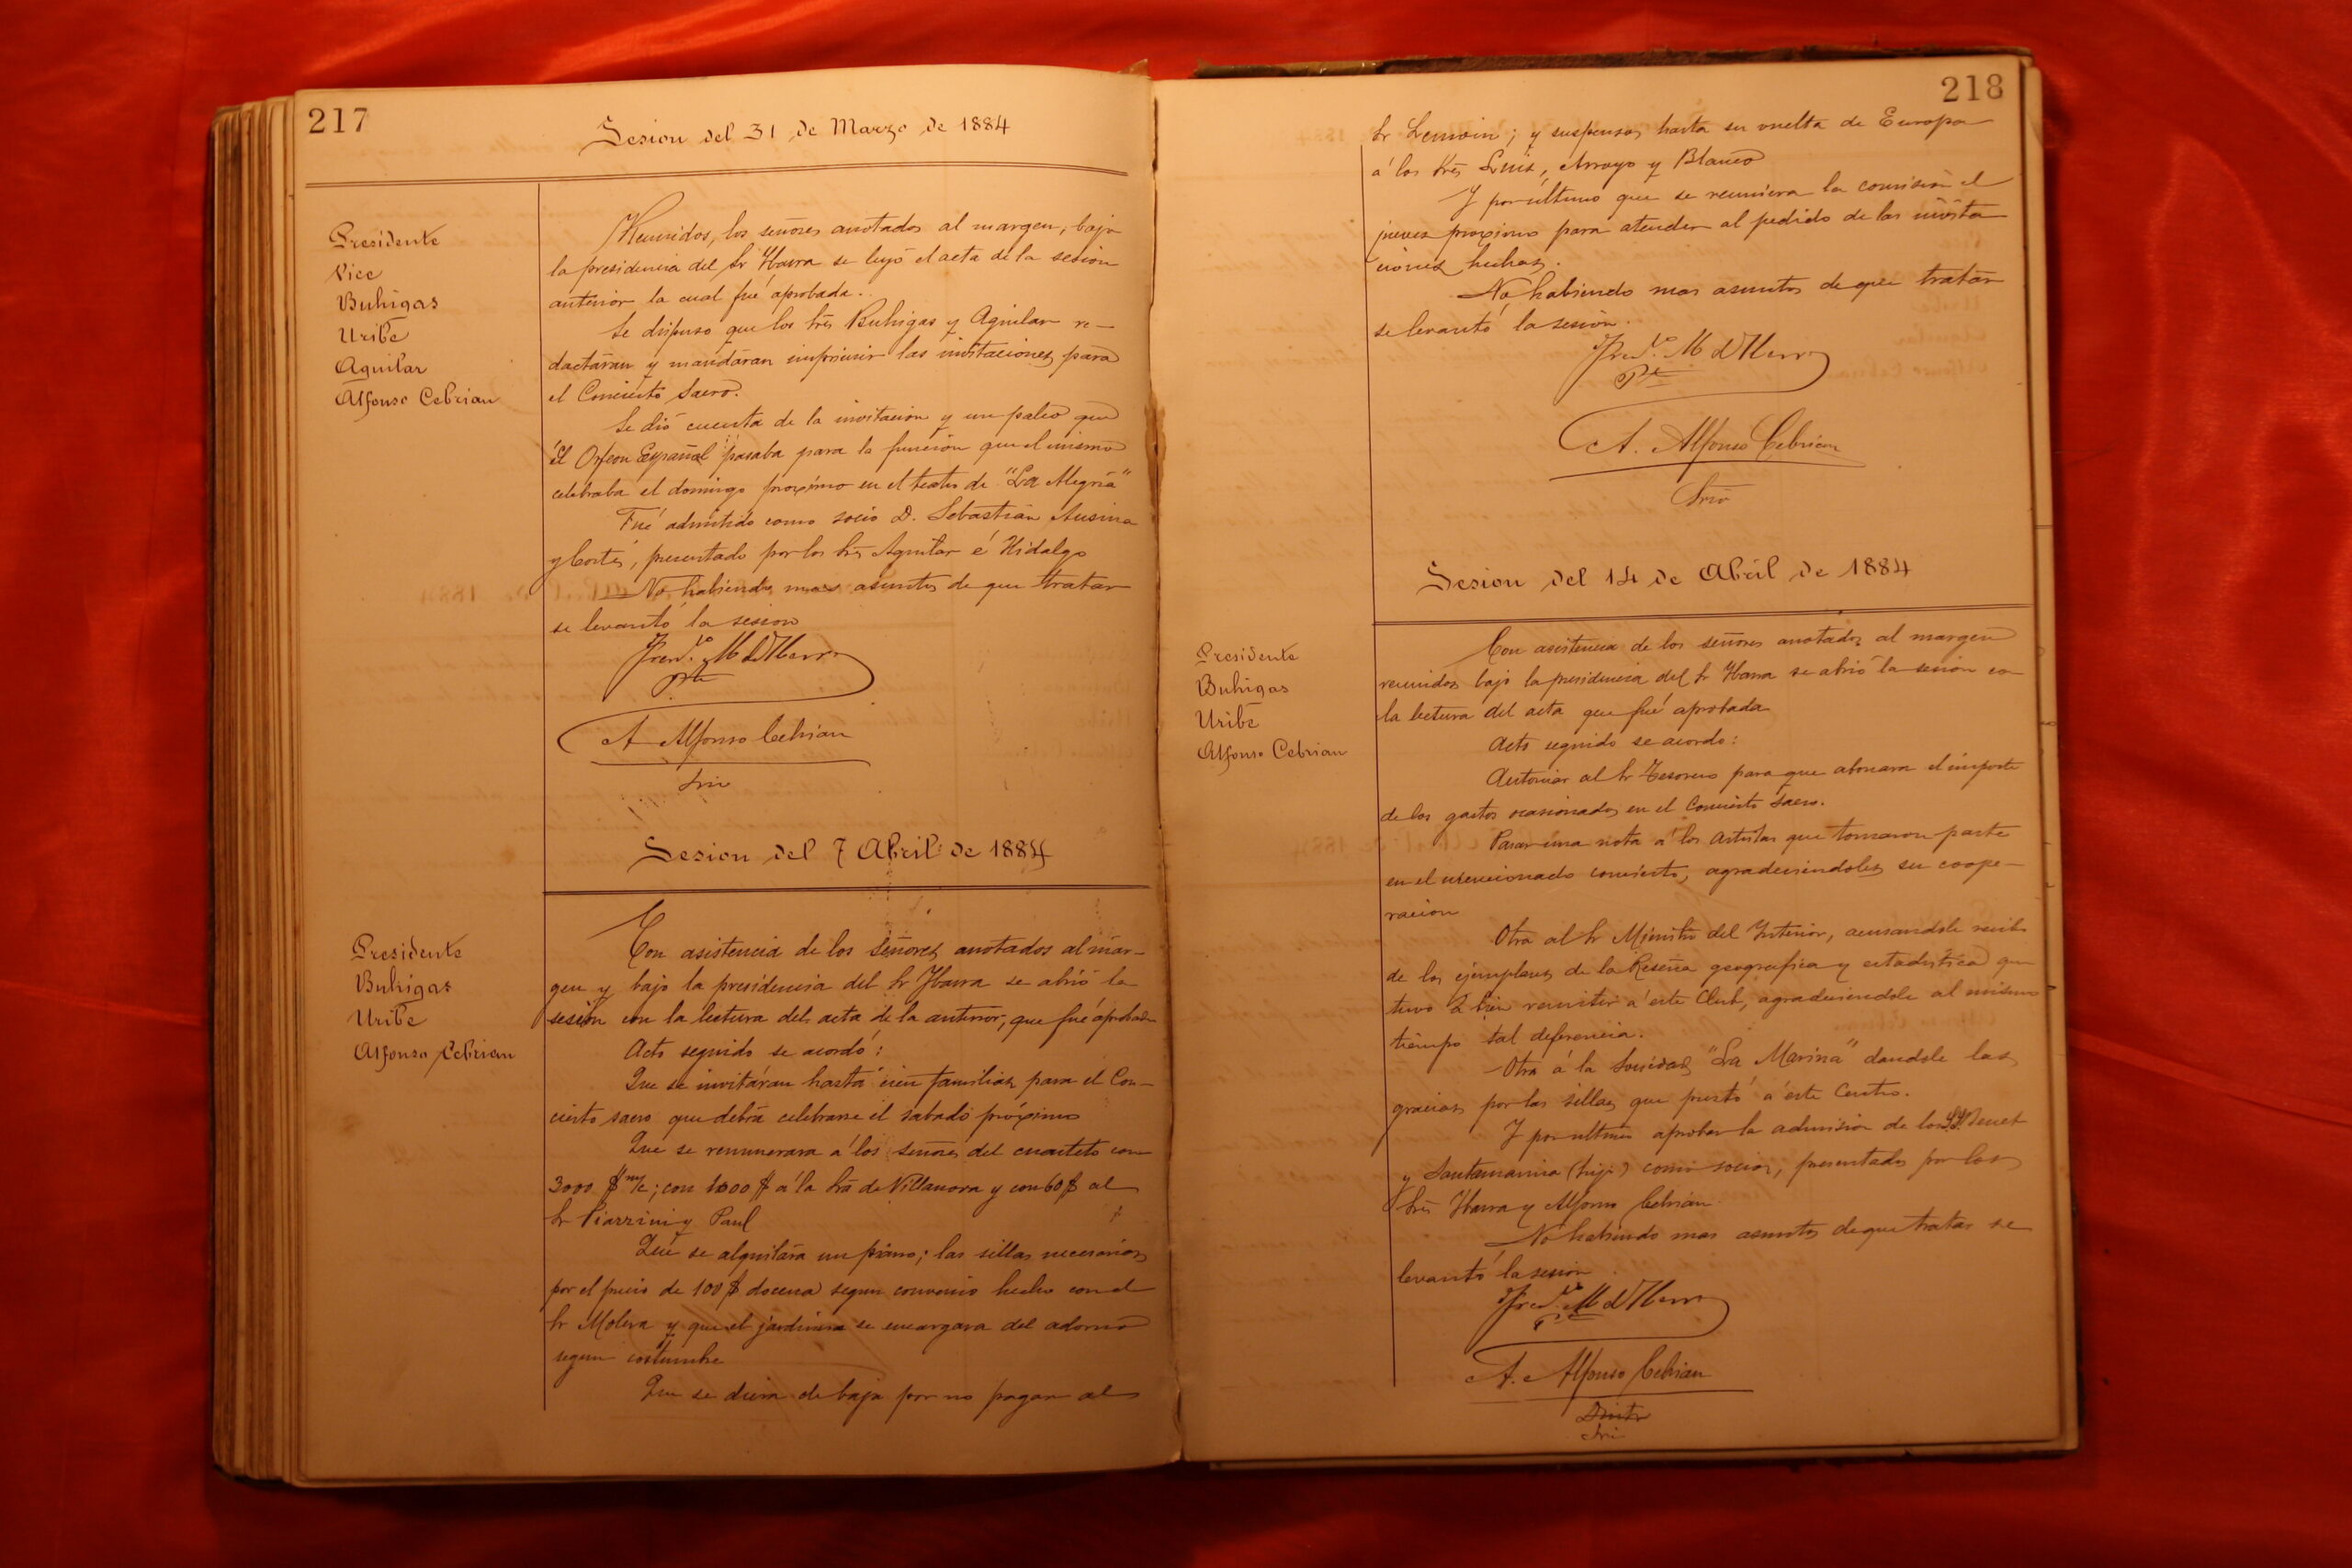 217
Sesion del 31 de Marzo de 1884
Presidente
Vice
Buhigas
Uribe
Aguilar
Alfonso Cebrian
Reunidos, los señores anotados al margen, bajo
la presidencia del Sr Ybarra se leyó el acta de la sesión
anterior la cual fué aprobada.
Se dispuso que los Srēs Buhigas y Aguilar re-
dactáran y mandáran imprimir las invitaciones para
el Concierto Sacro.
Se dió cuenta de la invitacion y un palco que
él Orfeon Español pasaba para la funcion que el mismo
celebraba el domingo próximo en el teatro de "La Alegria"
Fué admitido como socio D. Sebastián Ausina
y Cortés, presentado por los Srēs Aguilar é Hidalgo
No habiendo mas asuntos de que tratar
se levantó la sesion
A Alfonso Cebrian
Srio
Sesion del 7 Abril de 1884
Presidente
Buhigas
Uribe
Alfonso Cebrian
Con asistencia de los señores anotados al mar-
gen y bajo la presidencia del Sr Ybarra se abrió la
sesión con la lectura del acta de la anterior, que fué aprobada
Acto seguido se acordó:
Que se invitáran hasta cien familias para el Con-
cierto sacro que debrá celebrarse el sabado próximo
Que se remunerara a los señores del cuarteto con
3000 $ m/c; con 1000 $ a la Srā de Villanova y con 60 $ al
Sr Piazzini y Paul
Qué se alquilára un piano; las sillas necesarias
por el precio de 100 $ docena segun convenio hecho con el
Sr Molera y que el jardinero se encargara del adorno
segun costumbre
Que se diera de baja por no pagar al
218
Sr Lemoin; y suspensos hasta su vuelta de Europa
á los Srēs Luis, Arroyo y Blanco
Y por último que se reuniera la comision el
jueves proximo para atender al pedido de las invita
ciones hechas.
No habiendo mas asuntos de que tratar
se levantó la sesion.
A. Alfonso Cebrian
Srio
Sesion del 14 de Abril de 1884
Presidente
Buhigas
Uribe
Alfonso Cebrian
Con asistencia de los señores anotados al margen
reunidos bajo la presidencia del Sr Ybarra se abrió la sesion co
la lectura del acta que fué aprobada
Acto seguido se acordo:
Autorizar al Sr Tesorero para que abonara el importe
de los gastos ocasionados en el Concierto Sacro.
Pasar una nota a los artistas que tomaron parte
en el mencionado concierto, agradeciendoles su coope-
racion
Otra al Sr Ministro del Ynterior, acusandole recibo
de los ejemplares de la Reseña geografica y estadistica que
tuvo á bien remitir a este Club, agradeciendole al mismo
tiempo tal deferencia.
Otra á la Sociedad "La Marina" dandole las
gracias por las sillas que prestó a este Centro.
Y por ultimo aprobar la admision de los
y Santamarina (hijo) como socios, presentados por los
Srēs Ybarra y Alfonso Cebrian
No habiendo mas asuntos de que tratar se
levantó la sesion
A. Alfonso Cebrian
Sri